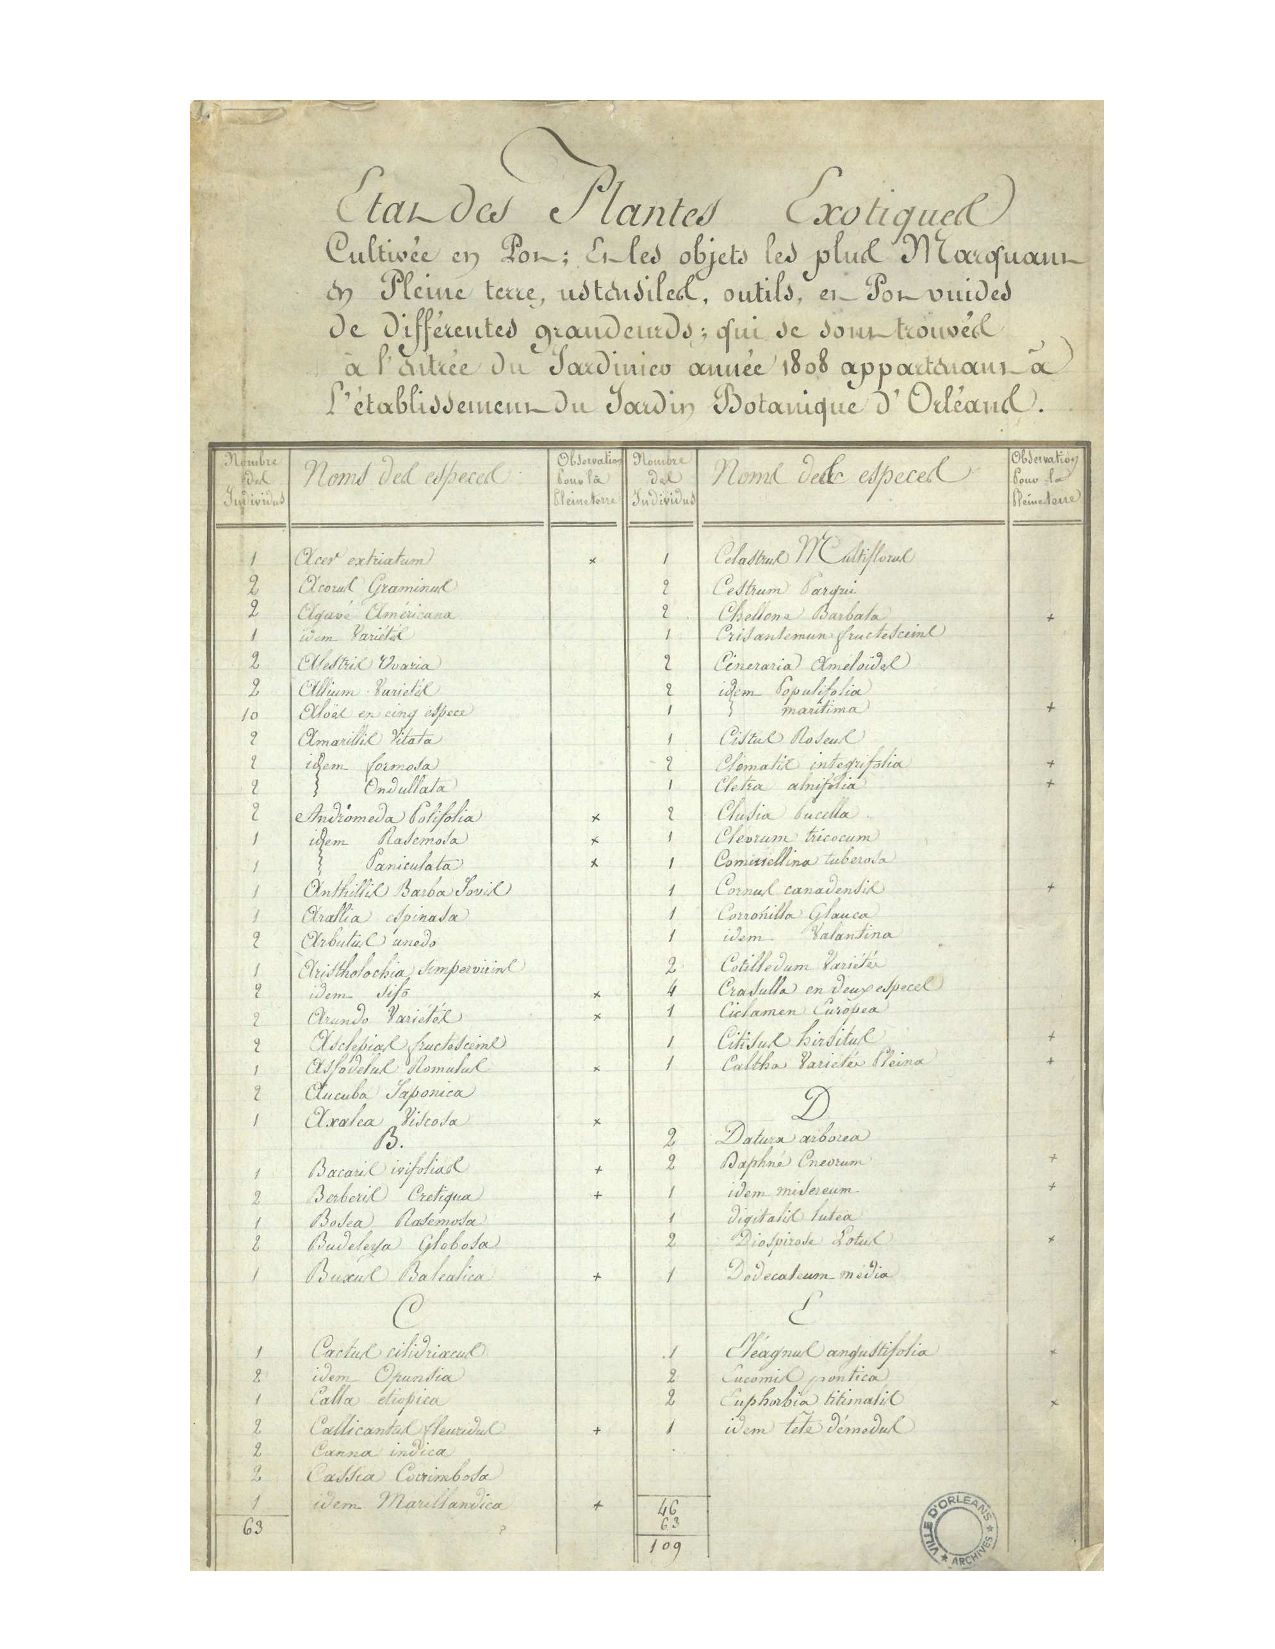 Etat des Plantes Exotiques
Cultivée en Pot; Et les objets les plus Marquant
en Pleine terre, ustensiles, outils, et Pot vuides
de différentes grandeurds; qui se sont trouvés
à l'entrée du Jardinier année 1808 appartenant à
L'établissement du Jardin Botanique d'Orléans.
Nombre des Individus Noms des especes Observation Pour la Pleine terre
1 Acer extriatum x
2 Acorus Graminus
2 Agavé Américana
1 idem Variétés
2 Alestris Uvaria
2 Allium Variétés
10 Aloës en cinq espece
2 Amarillis Vitata
2 idem formosa
2 Ondullata
2 Andromeda Polifolia x
1 idem Rasemosa x
1 Paniculata x
1 Anthillis Barba Jovis
1 Arallia espinasa
2 Arbutus unedo
1 Aristholochia sempervirins
2 idem sifo x
2 Arundo Variétés x
2 Asclepias fructesceins
1 Asfodelus Romulus x
2 Aucuba Japonica
1 Axalea Viscosa x
B.
1 Bacaris ivifolias +
2 Berberis Cretiqua +
1 Bosea Rasemosa
2 Budeleya Globosa
1 Buxus Balealica +
C
1 Cactus cilidriacus
2 idem Opunsia
1 Calla etiopica
2 Callicantus fleuridus +
2 Canna indica
2 Cassia Corimbosa
1 idem Marillandica +
63
Nombre des Individus Noms des especes Observation Pour la Pleine terre
1 Celastrus Multiflorus
2 Cestrum Parqui
2 Chellone Barbata +
1 Crisantemun fructesceins
2 Cineraria Améloïdes
2 idem Populifolia
1 maritima +
1 Cistus Roseus
2 Clématis integrifolia +
1 Cletra alnifolia +
2 Clusia Pucella
1 Cleorum tricocum
1 Comissellina tuberosa
1 Cornus canadensis +
1 Corronilla Glauca
1 idem Valantina
2 Cotilledum Variétée
4 Crasulla en deux especes
1 Ciclamen Européa
1 Citisus hirsitus +
1 Caltha Variétée Pleina +
D
2 Datura arborea
2 Daphné Cneorum +
1 idem misereum +
1 digitalis lutea
2 Diospirose Lotus x
1 Dodécateum média
E
1 Eléagnus angustifolia x
2 Eucomis pontica
2 Euphorbia titimalis x
1 idem tête démedus
46
63
109
VILLE D'ORLEANS
ARCHIVES